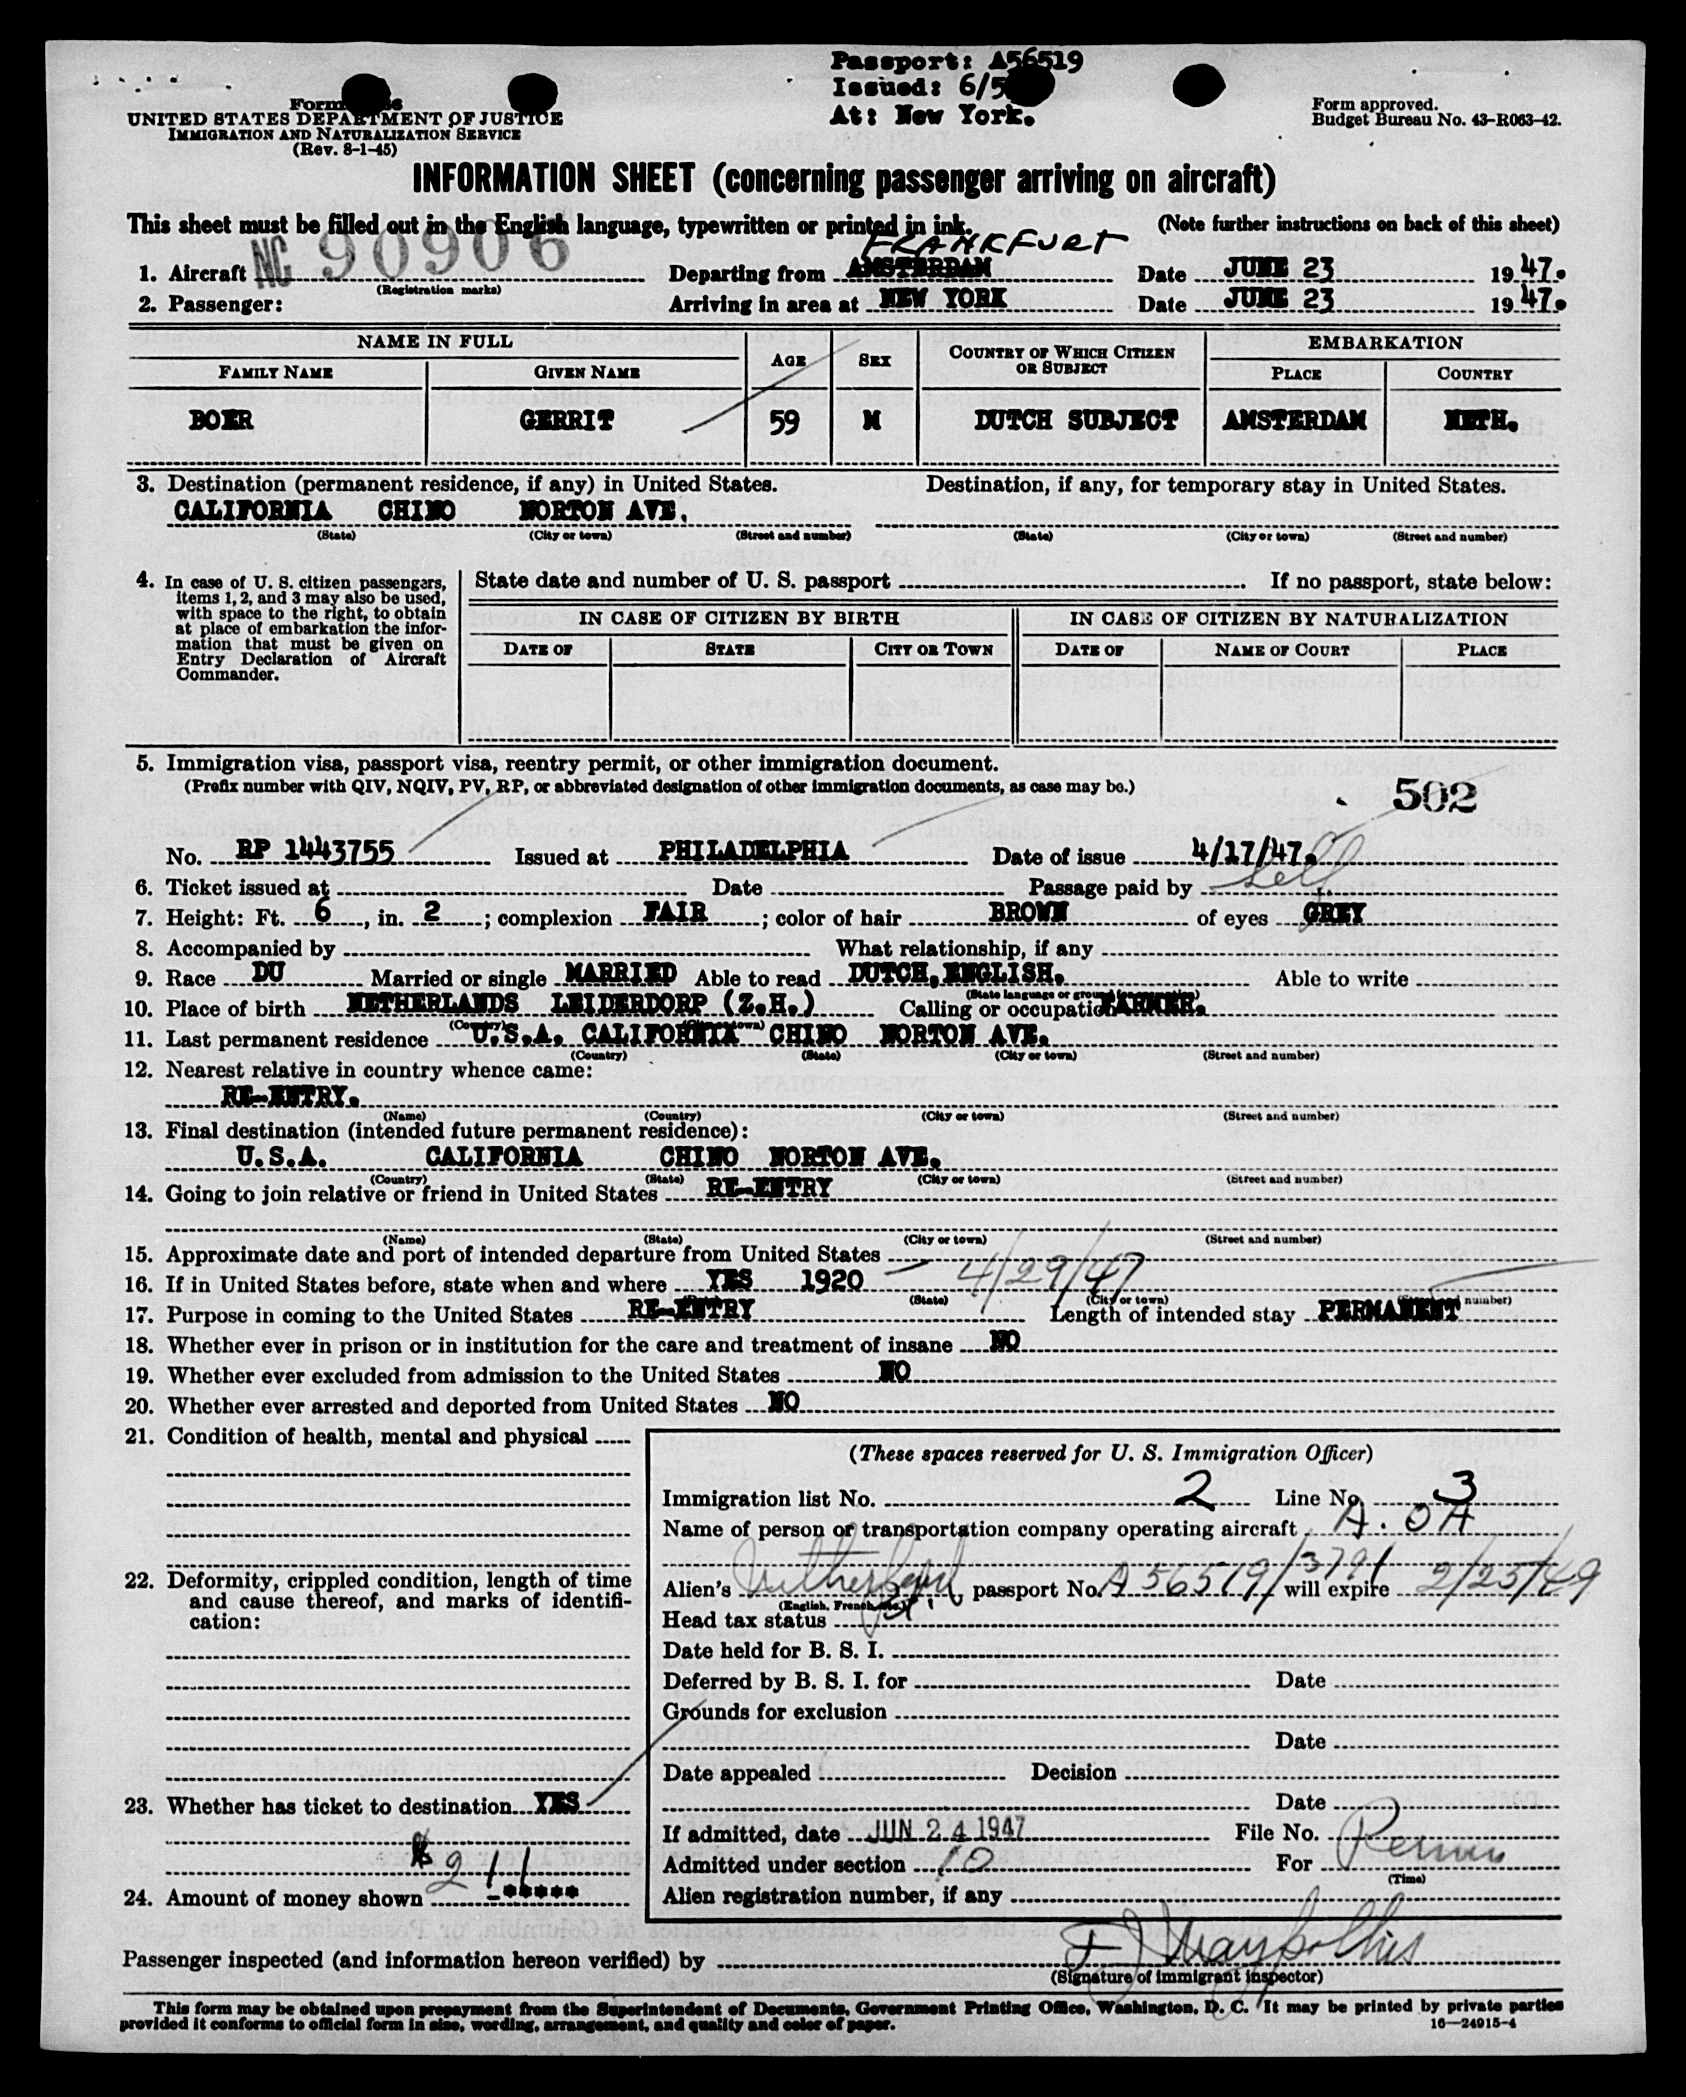 Passport: A56519
Issued: 6/5
At: New York.
Form
UNITED STATES DEPARTMENT OF JUSTICE
IMMIGRATION AND NATURALIZATION SERVICE
(Rev. 8-1-45)
Form approved.
Budget Bureau No. 43-R063-42.
INFORMATION SHEET (concerning passenger arriving on aircraft)
This sheet must be filled out in the English language, typewritten or printed in ink. (Note further instructions on back of this sheet)
FRANKFURT
1. Aircraft NC 90906 Departing from AMSTERDAM Date JUNE 23 1947.
(Registration marks)
2. Passenger: Arriving in area at NEW YORK Date JUNE 23 1947.
NAME IN FULL AGE SEX COUNTRY OF WHICH CITIZEN OR SUBJECT EMBARKATION
FAMILY NAME GIVEN NAME PLACE COUNTRY
BOER GERRIT 59 M DUTCH SUBJECT AMSTERDAM NETH.
3. Destination (permanent residence, if any) in United States. Destination, if any, for temporary stay in United States.
CALIFORNIA CHINO NORTON AVE.
(State) (City or town) (Street and number) (State) (City or town) (Street and number)
4. In case of U. S. citizen passengers, items 1, 2, and 3 may also be used, with space to the right, to obtain at place of embarkation the information that must be given on Entry Declaration of Aircraft Commander.
State date and number of U. S. passport If no passport, state below:
IN CASE OF CITIZEN BY BIRTH IN CASE OF CITIZEN BY NATURALIZATION
DATE OF STATE CITY OR TOWN DATE OF NAME OF COURT PLACE
5. Immigration visa, passport visa, reentry permit, or other immigration document.
(Prefix number with QIV, NQIV, PV, RP, or abbreviated designation of other immigration documents, as case may be.)
502
No. RP 1443755 Issued at PHILADELPHIA Date of issue 4/17/47.
6. Ticket issued at Date Passage paid by Self
7. Height: Ft. 6, in. 2; complexion FAIR; color of hair BROWN of eyes GREY
8. Accompanied by What relationship, if any
9. Race DU Married or single MARRIED Able to read DUTCH, ENGLISH. Able to write
(State language or ground for exemption)
10. Place of birth NETHERLANDS LEIDERDORP (Z.H.) Calling or occupation FARMER.
(Country) (City or town)
11. Last permanent residence U.S.A. CALIFORNIA CHINO NORTON AVE.
(Country) (State) (City or town) (Street and number)
12. Nearest relative in country whence came:
RE-ENTRY.
(Name) (Country) (City or town) (Street and number)
13. Final destination (intended future permanent residence):
U.S.A. CALIFORNIA CHINO NORTON AVE.
(Country) (State) (City or town) (Street and number)
14. Going to join relative or friend in United States RE-ENTRY
(Name) (State) (City or town) (Street and number)
15. Approximate date and port of intended departure from United States
16. If in United States before, state when and where YES 1920 - 4/29/47
(State) (City or town) (Street and number)
17. Purpose in coming to the United States RE-ENTRY Length of intended stay PERMANENT
18. Whether ever in prison or in institution for the care and treatment of insane NO
19. Whether ever excluded from admission to the United States NO
20. Whether ever arrested and deported from United States NO
21. Condition of health, mental and physical
22. Deformity, crippled condition, length of time and cause thereof, and marks of identification:
23. Whether has ticket to destination YES
24. Amount of money shown $211 -*****
(These spaces reserved for U. S. Immigration Officer)
Immigration list No. 2 Line No. 3
Name of person or transportation company operating aircraft A.OA
Alien's passport No. A 56519/3791 will expire 2/25/49
(English, French, etc.)
Head tax status
Date held for B. S. I.
Deferred by B. S. I. for Date
Grounds for exclusion
Date
Date appealed Decision
Date
If admitted, date JUN 24 1947 File No.
Admitted under section 10 For
(Time)
Alien registration number, if any
Passenger inspected (and information hereon verified) by
(Signature of immigrant inspector)
This form may be obtained upon prepayment from the Superintendent of Documents, Government Printing Office, Washington, D. C. It may be printed by private parties
provided it conforms to official form in size, wording, arrangement, and quality and color of paper.
16—24915-4